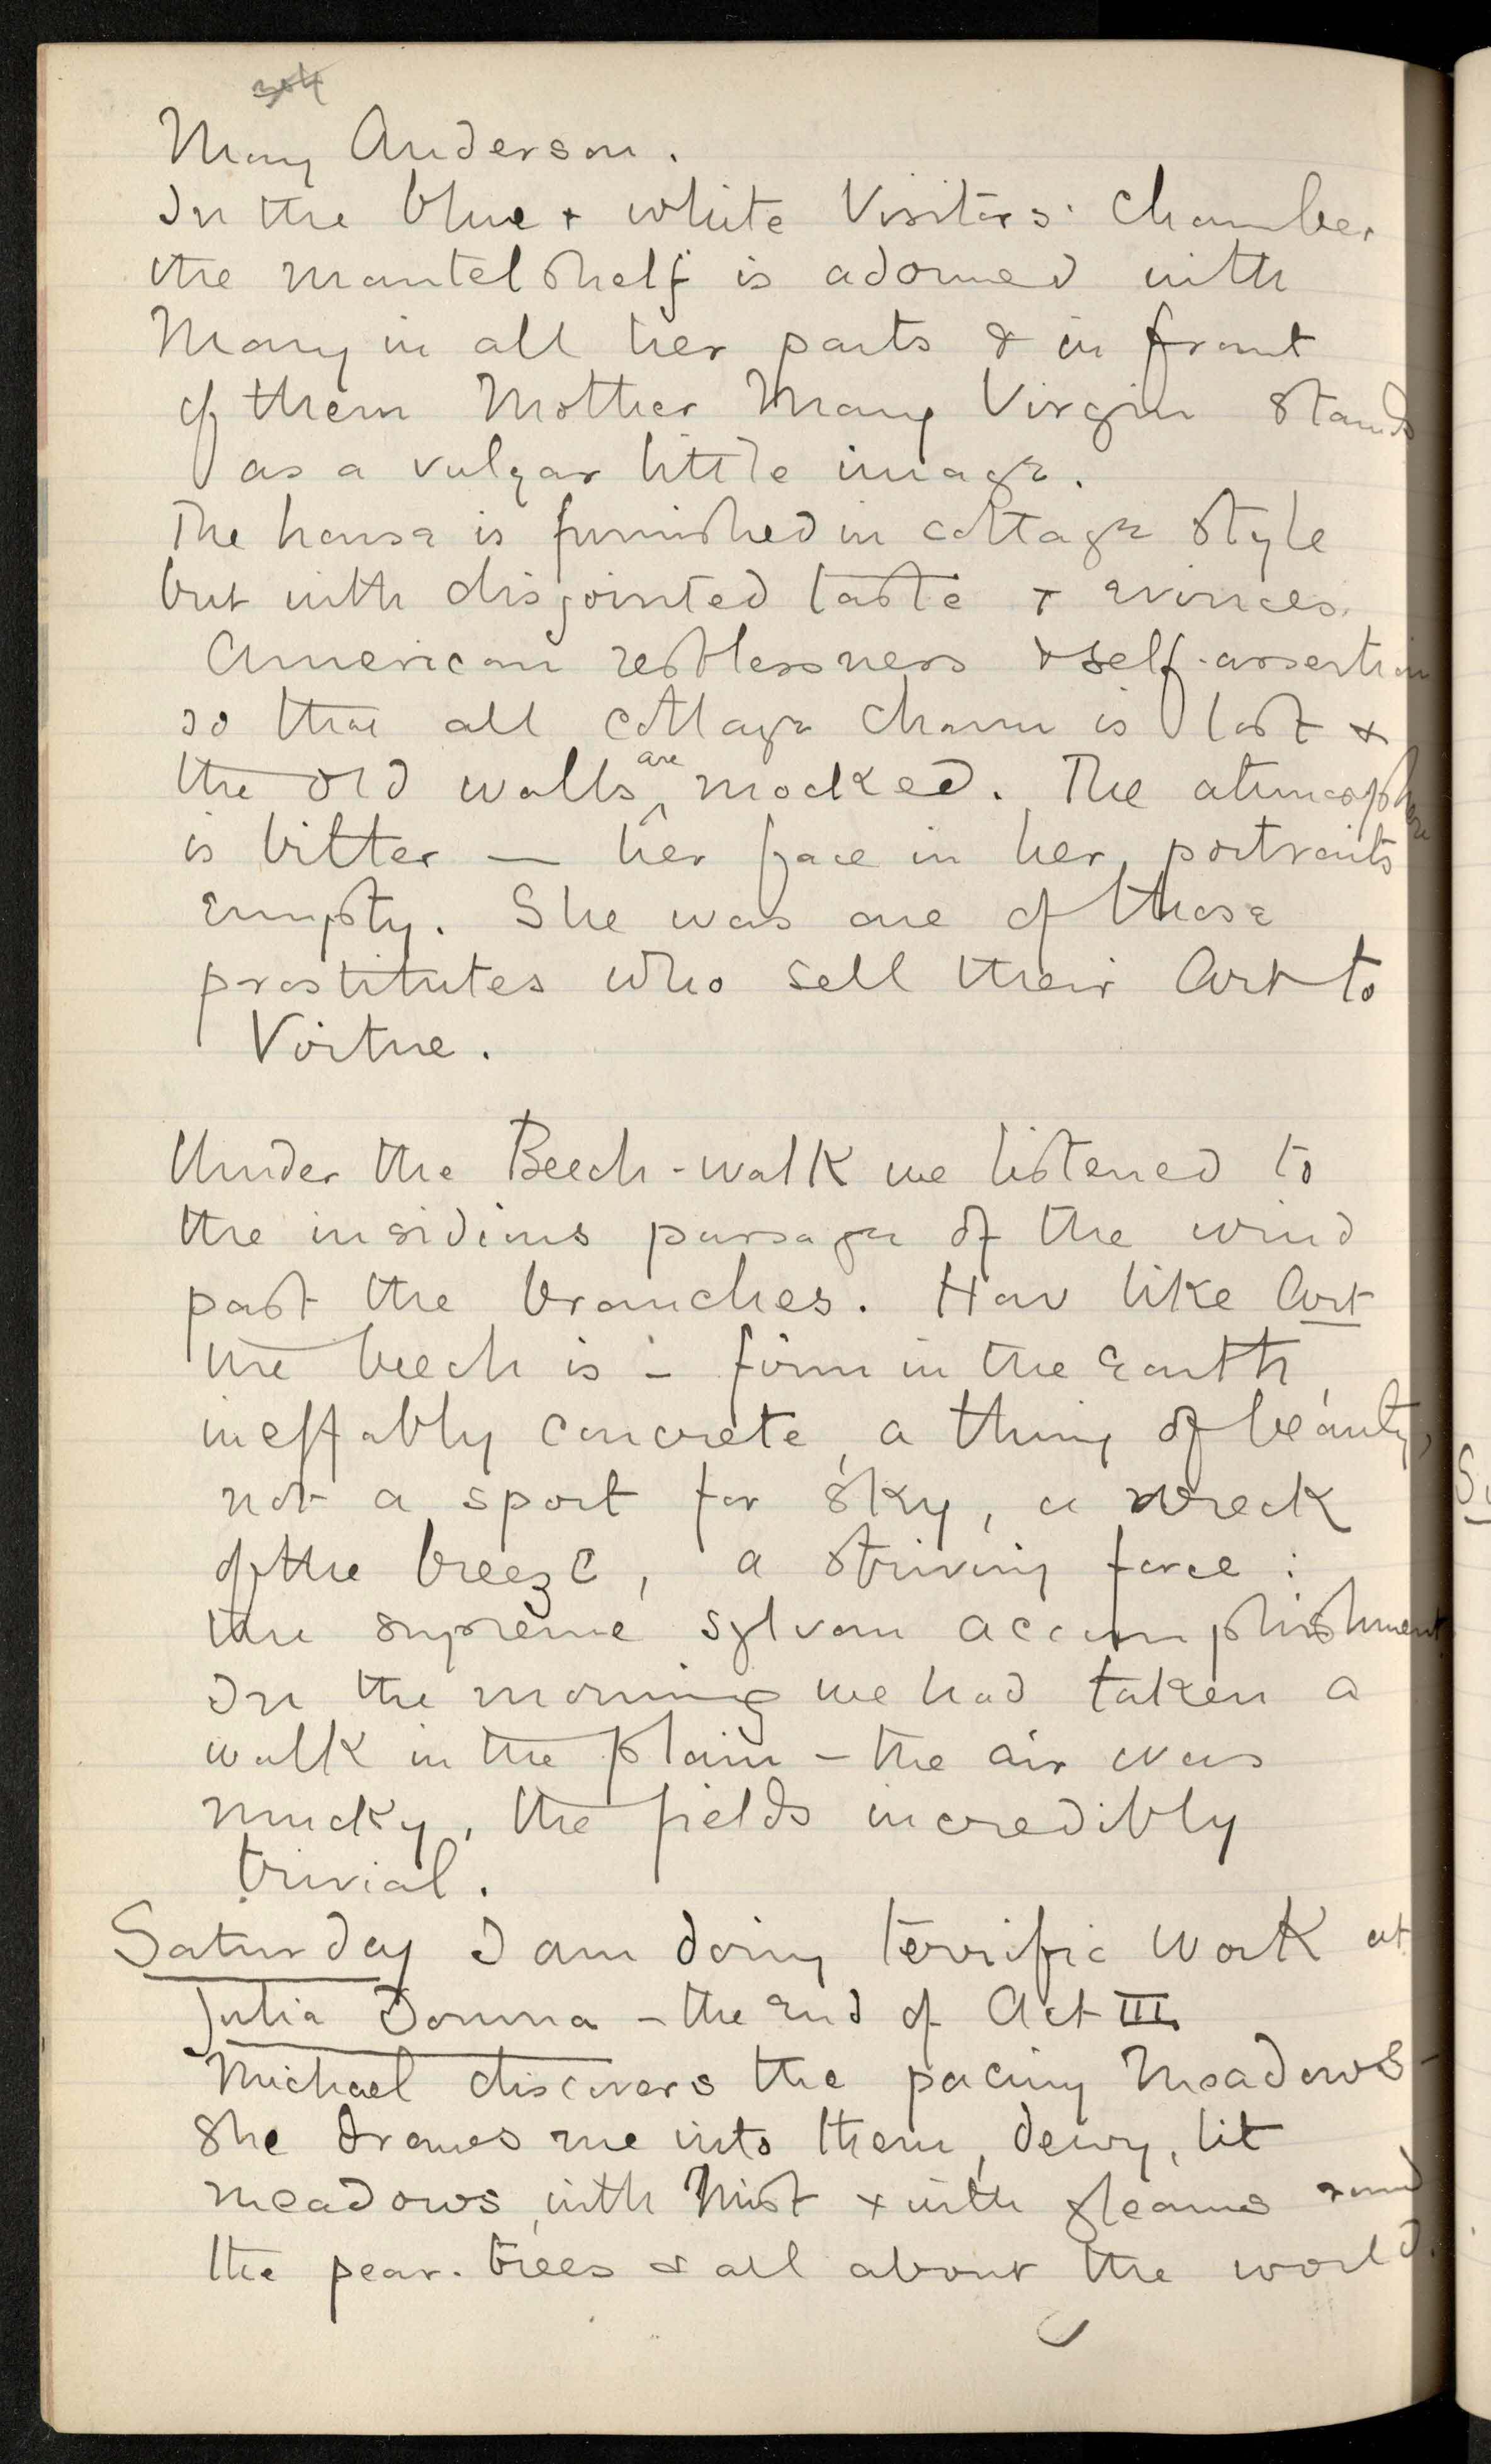 Mary Anderson.
In the blue + white Visitors' Chamber
the mantelshelf is adorned with
Mary in all her parts & in front
of them Mother Mary Virgin stands
as a vulgar little image.
The house is furnished in cottage style
but with disjointed taste + evinces
American restlessness & self-assertion
so that all cottage charm is lost &
the old walls are mocked. The atmosphere
is bitter — her face in her portraits
empty. She was one of those
prostitutes who sell their Art to
Virtue.
Under the Beech-walk we listened to
the insidious passage of the wind
past the branches. How like Art
the beech is – firm in the earth,
ineffably concrete, a thing of beauty,
not a sport for sky, a wreck
of the breeze, a striving force:
the supreme sylvan accomplishment
In the morning we had taken a
walk in the plain – the air was
mucky, the fields incredibly
trivial.
Saturday I am doing terrific work at
Julia Domna – the end of Act III.
Michael discovers the pacing meadows –
She draws me into them, dewy, lit
meadows, with mist + with gleams round
the pear-trees & all about the world.